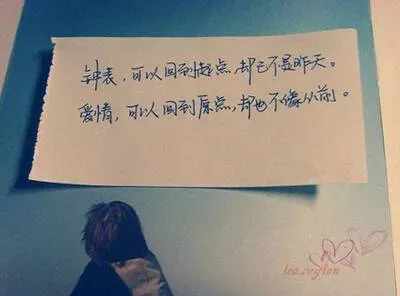 钟表，可以回到起点，却已不是昨天。
爱情，可以回到原点，却也不像从前。